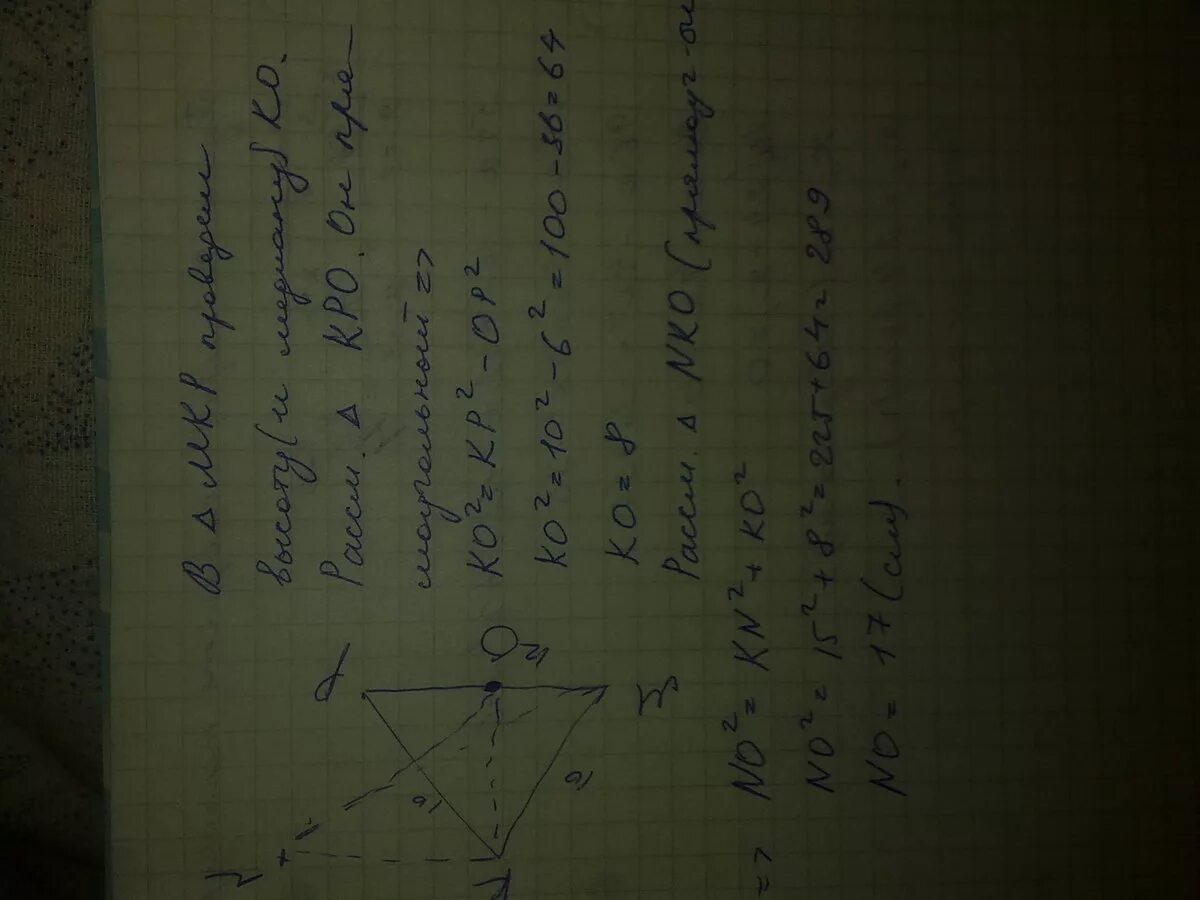 В Δ МКР проведем
высоту (и медиану) КО.
Рассм. Δ КРО. Он пря-
моугольный =>
KO² = KP² - OP²
KO² = 10² - 6² = 100 - 36 = 64
KO = 8
Рассм. Δ NKO (прямоуг-ый
=> NO² = KN² + KO²
NO² = 15² + 8² = 225 + 64 = 289
NO = 17 (см).
N
K
P
O
M
12
10
10